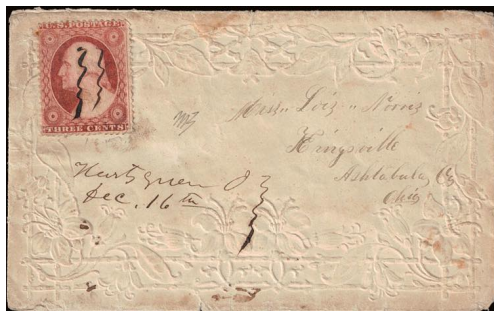 U.S. POSTAGE
THREE CENTS
Miss Lois Norris
Kingsville
Ashtabula Co
Ohio
Hartsgrove O
Dec. 16th